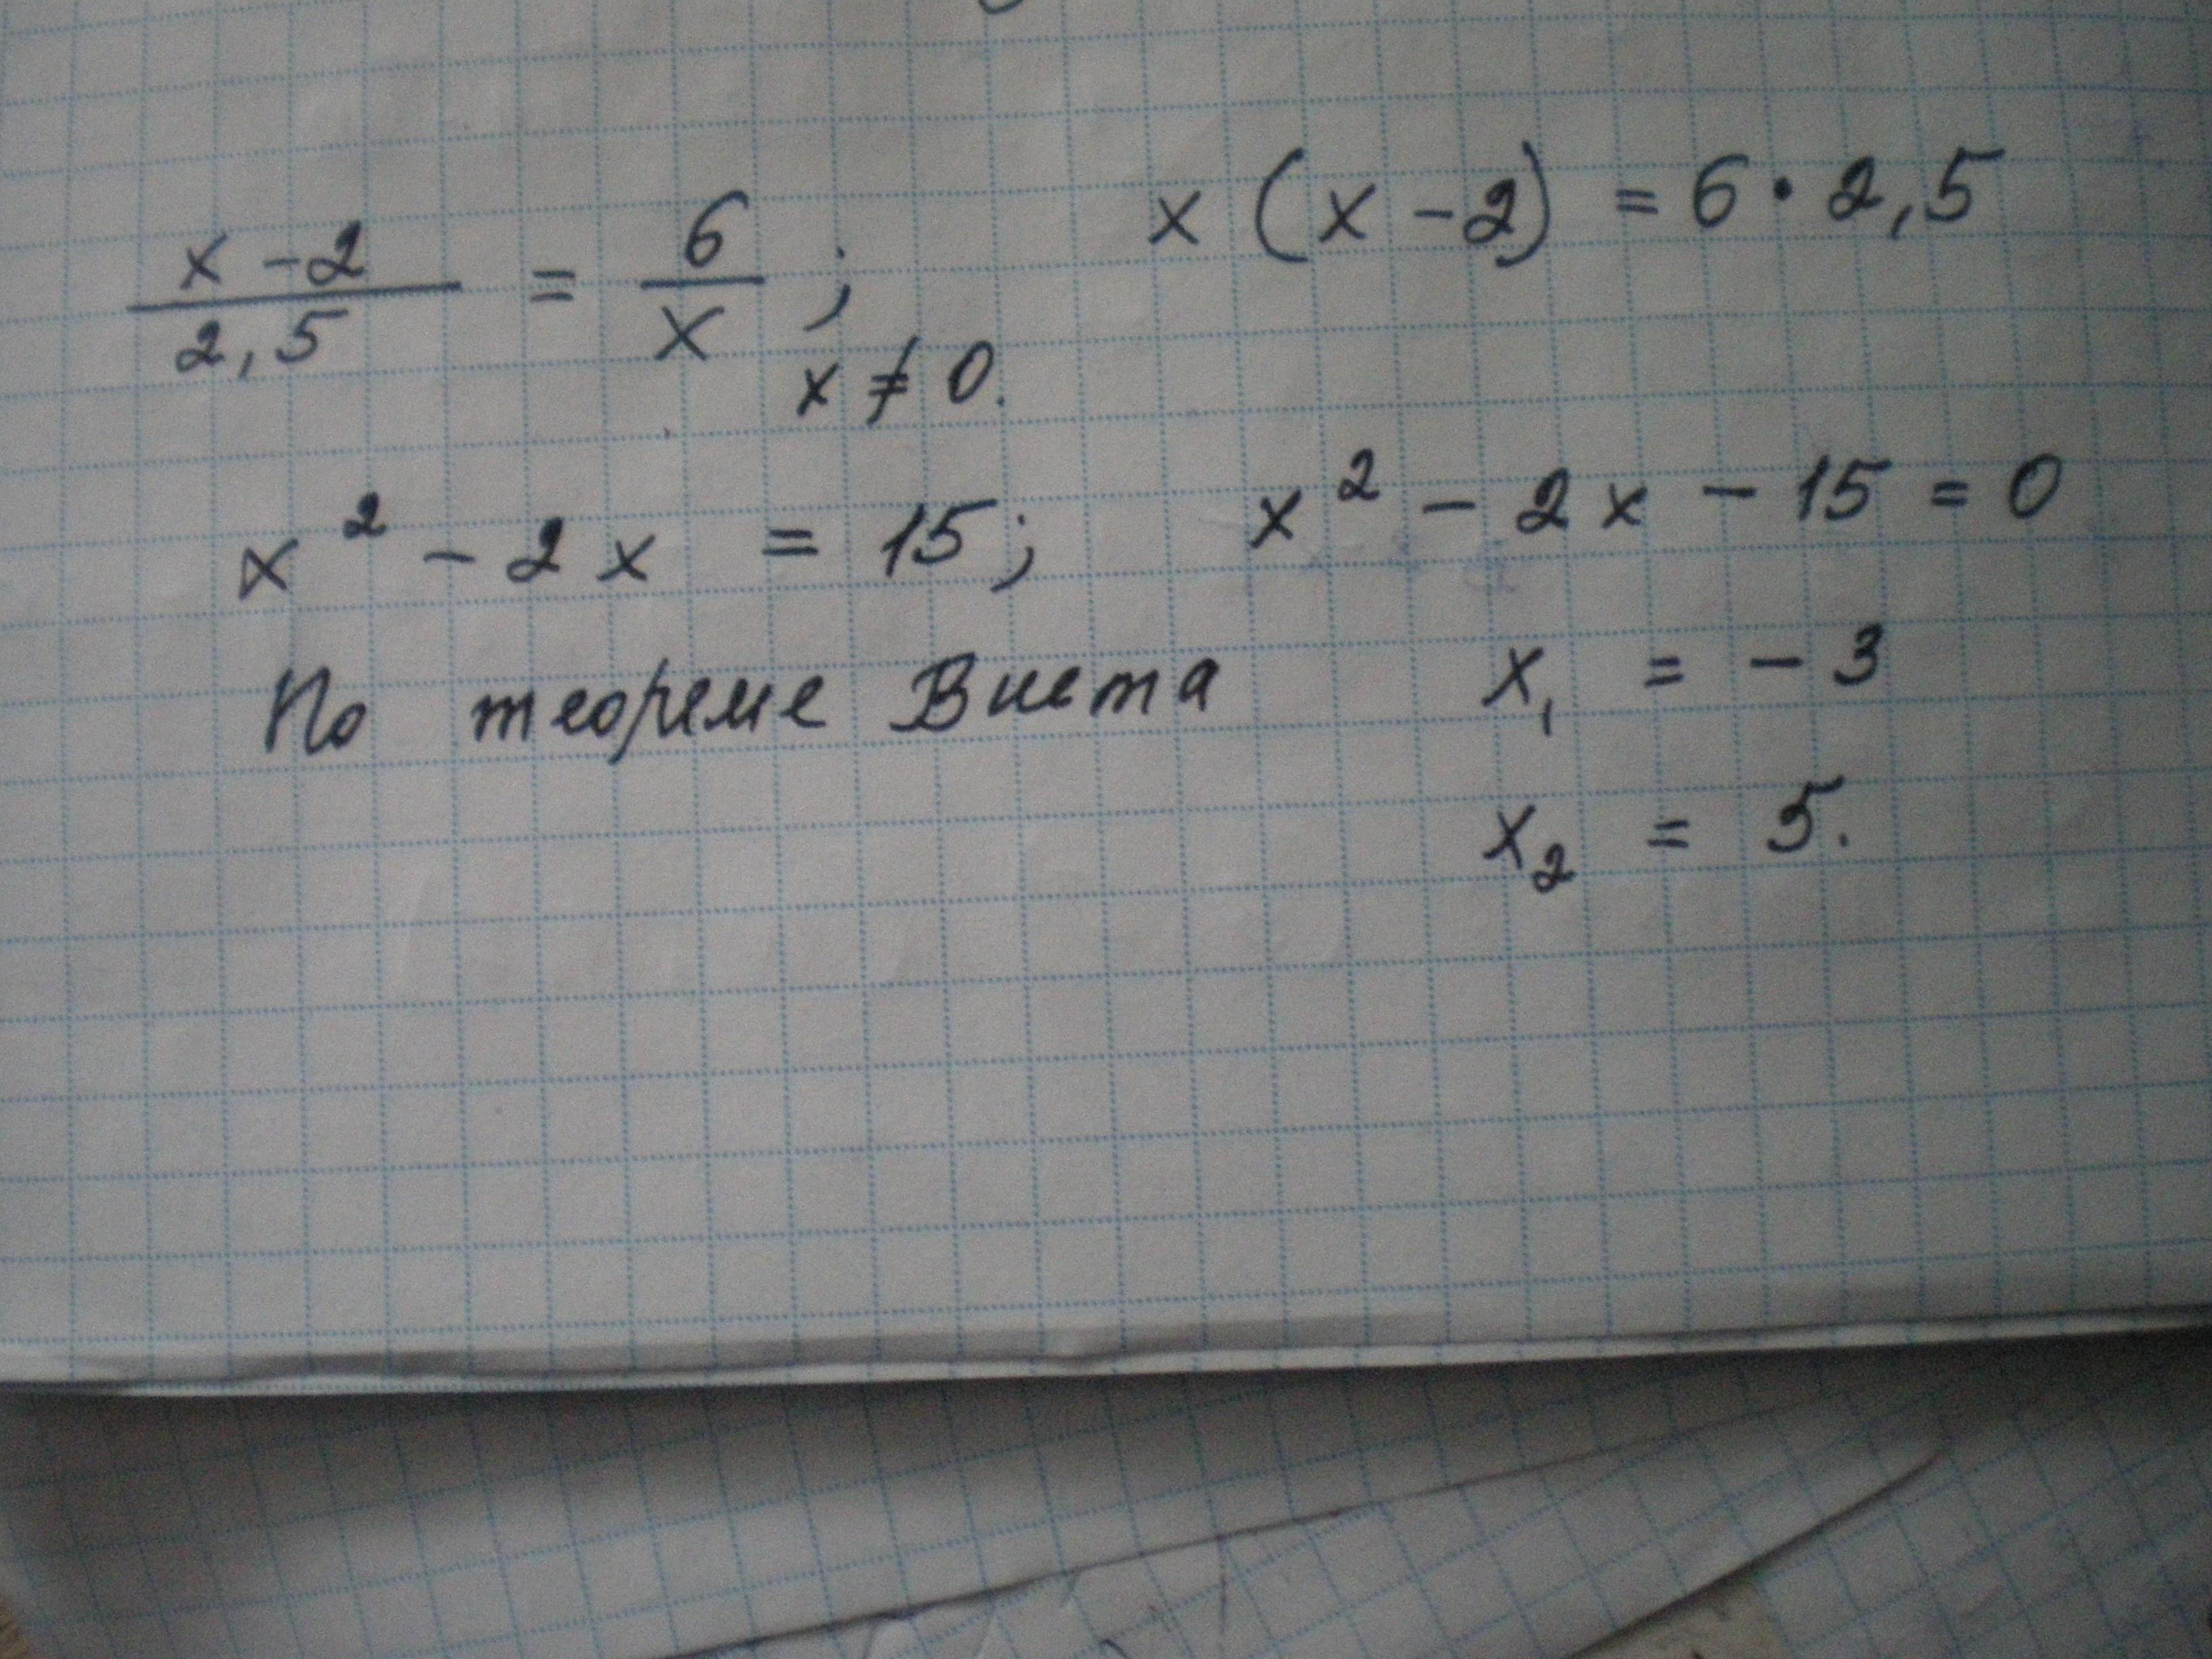 x - 2 / 2,5 = 6 / x ; x ≠ 0. x (x - 2) = 6 · 2,5
x² - 2x = 15; x² - 2x - 15 = 0
По теореме Виета x₁ = - 3
x₂ = 5.